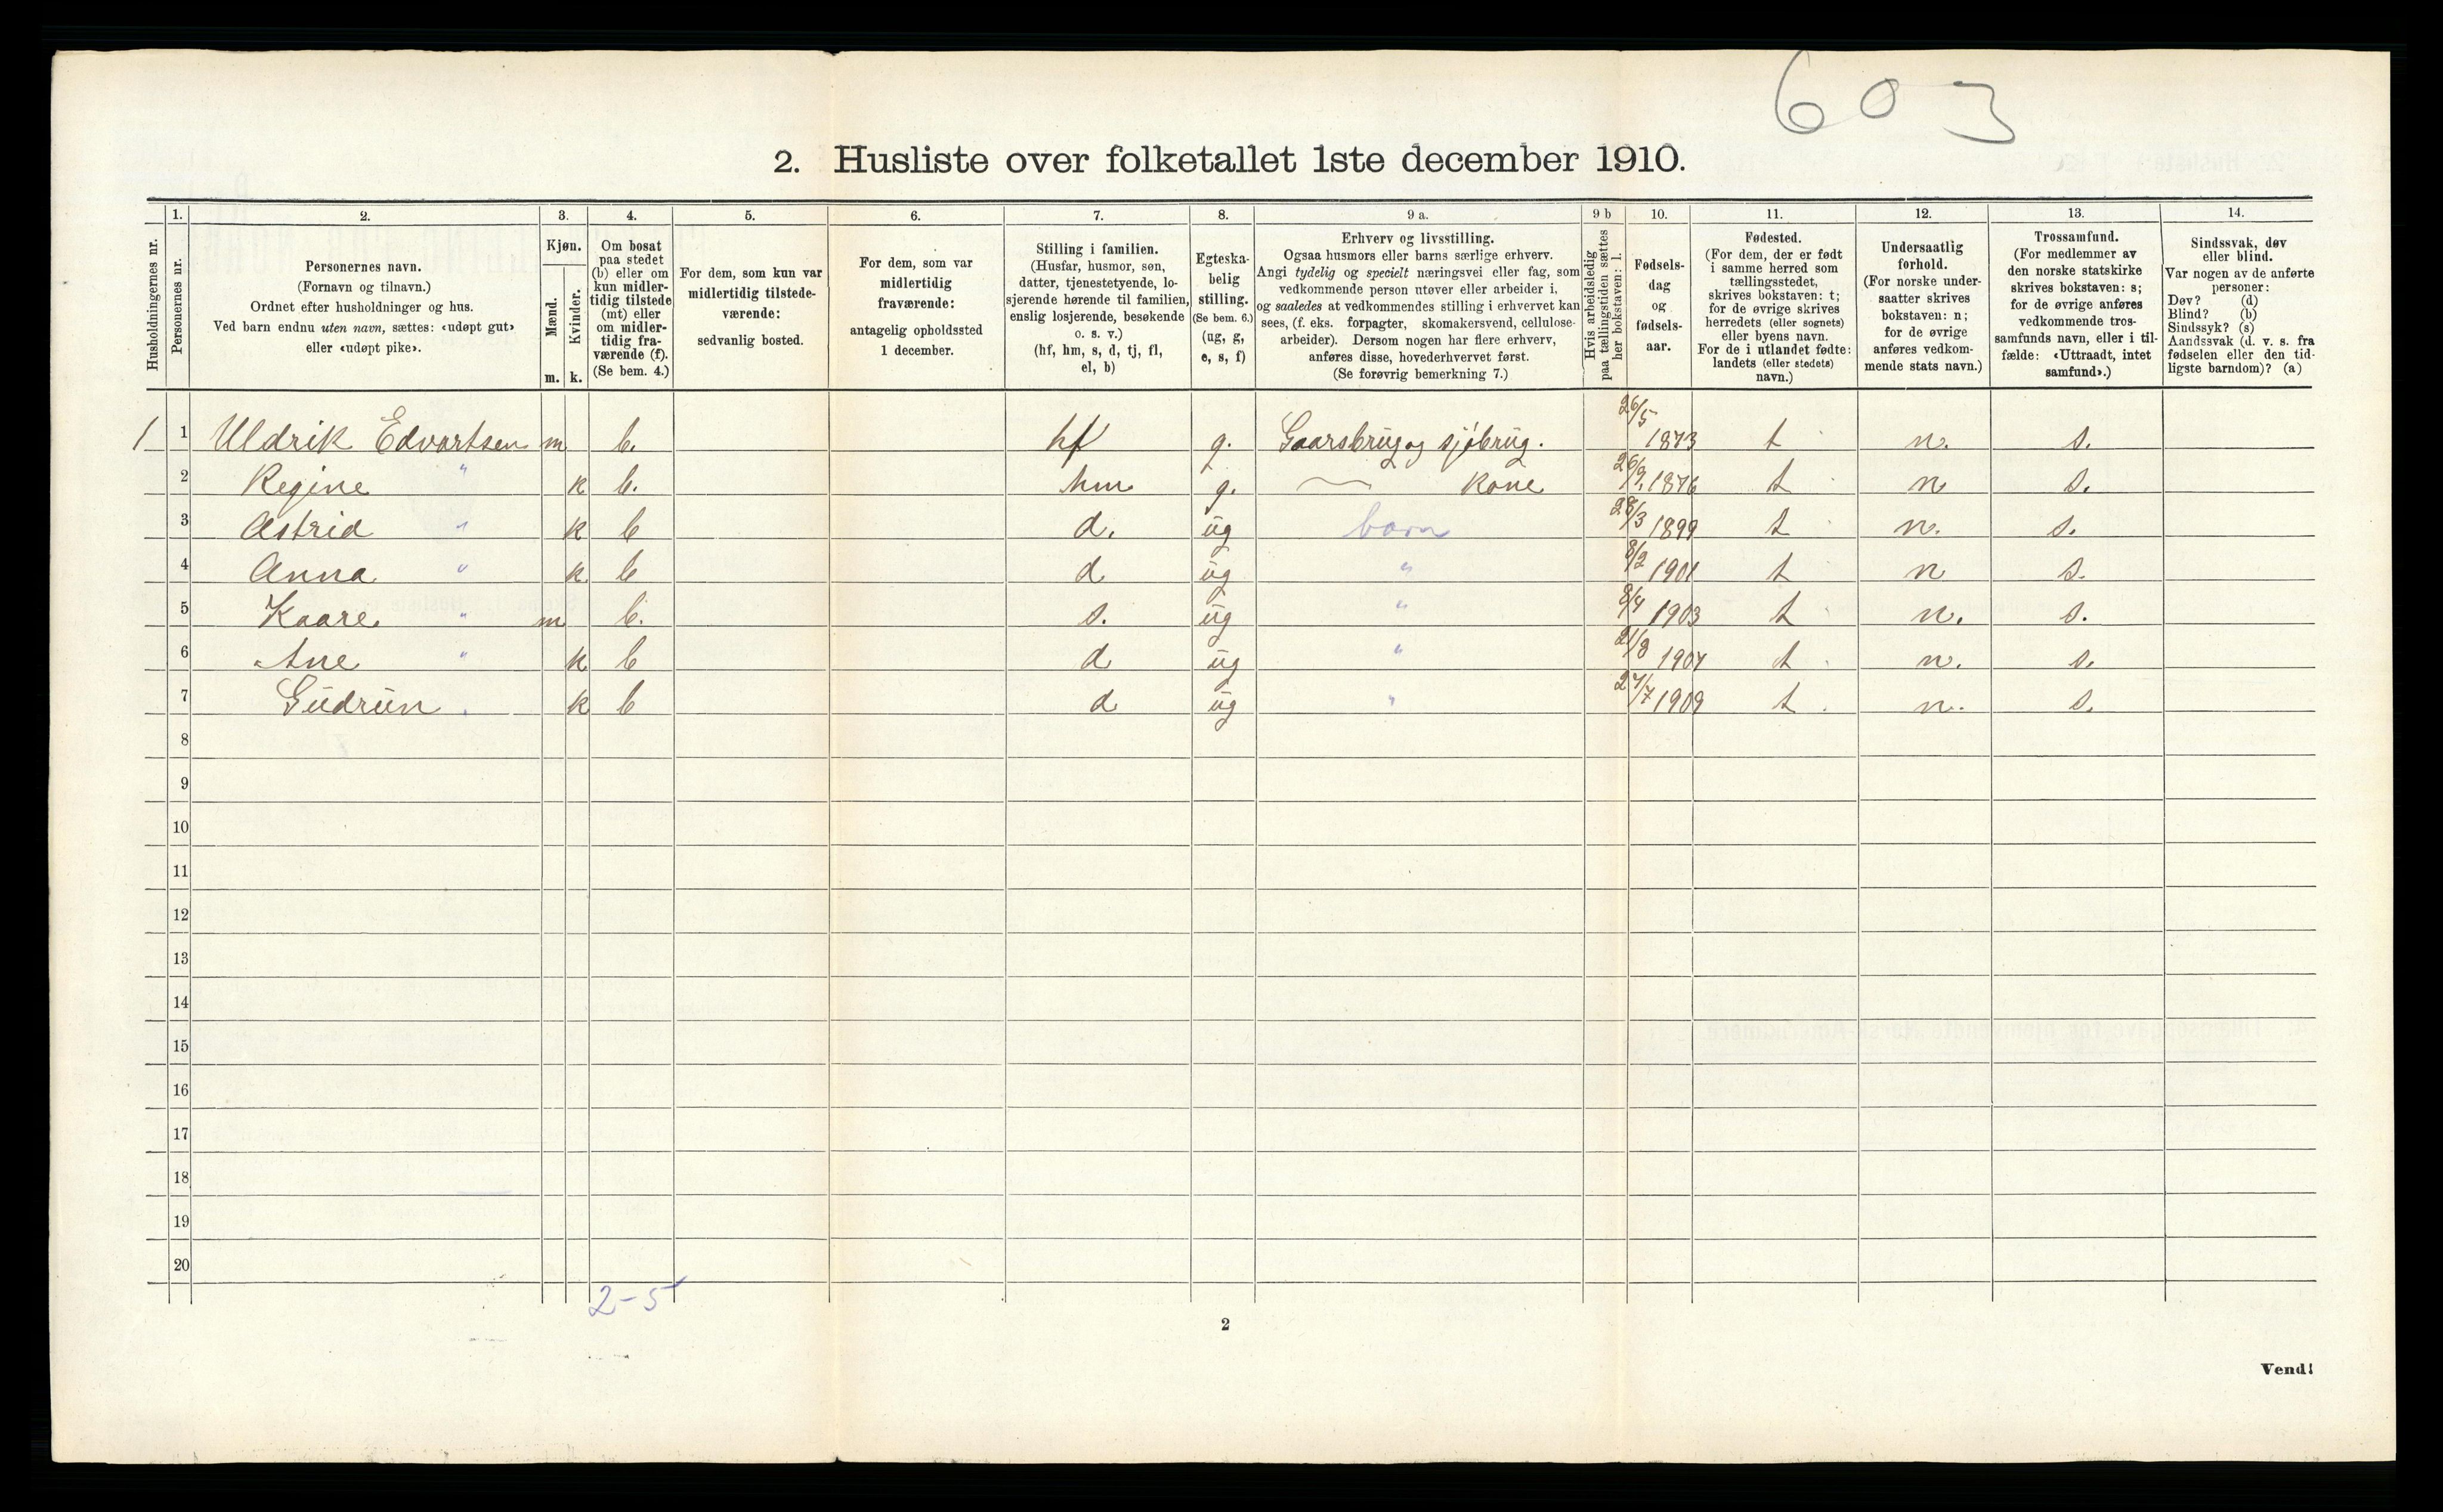 603
2. Husliste over folketallet 1ste december 1910.
Husholdningernes nr.
1.
Personernes nr.
2.
Personernes navn.
(Fornavn og tilnavn.)
Ordnet efter husholdninger og hus.
Ved barn endnu uten navn, sættes: «udøpt gut»
eller «udøpt pike».
3.
Kjøn.
Mænd.
Kvinder.
m. k.
4.
Om bosat
paa stedet
(b) eller om
kun midler-
tidig tilstede
(mt) eller
om midler-
tidig fra-
værende (f).
(Se bem. 4.)
5.
For dem, som kun var
midlertidig tilstede-
værende:
sedvanlig bosted.
6.
For dem, som var
midlertidig
fraværende:
antagelig opholdssted
1 december.
7.
Stilling i familien.
(Husfar, husmor, søn,
datter, tjenestetyende, lo-
sjerende hørende til familien,
enslig losjerende, besøkende
o. s. v.)
(hf, hm, s, d, tj, fl,
el, b)
8.
Egteska-
belig
stilling.
(Se bem. 6.)
(ug, g,
e, s, f)
9 a.
Erhverv og livsstilling.
Ogsaa husmors eller barns særlige erhverv.
Angi tydelig og specielt næringsvei eller fag, som
vedkommende person utøver eller arbeider i,
og saaledes at vedkommendes stilling i erhvervet kan
sees, (f. eks. forpagter, skomakersvend, cellulose-
arbeider). Dersom nogen har flere erhverv,
anføres disse, hovederhvervet først.
(Se forøvrig bemerkning 7.)
9 b
Hvis arbeidsledig
paa tællingstiden sættes
her bokstaven: l.
10.
Fødsels-
dag
og
fødsels-
aar.
11.
Fødested.
(For dem, der er født
i samme herred som
tællingsstedet,
skrives bokstaven: t;
for de øvrige skrives
herredets (eller sognets)
eller byens navn.
For de i utlandet fødte:
landets (eller stedets)
navn.)
12.
Undersaatlig
forhold.
(For norske under-
saatter skrives
bokstaven: n;
for de øvrige
anføres vedkom-
mende stats navn.)
13.
Trossamfund.
(For medlemmer av
den norske statskirke
skrives bokstaven: s;
for de øvrige anføres
vedkommende tros-
samfunds navn, eller i til-
fælde: «Uttraadt, intet
samfund».)
14.
Sindssvak, døv
eller blind.
Var nogen av de anførte
personer:
Døv? (d)
Blind? (b)
Sindssyk? (s)
Aandssvak (d. v. s. fra
fødselen eller den tid-
ligste barndom)? (a)
1 1 Uldrik Edvartsen m b. hf g. Gaarsbrug og sjøbrug. 26/5 1873 t n. s.
2 Regine " k b. hm g. kone 26/9 1876 t n s.
3 Astrid " k b d. ug barn 28/3 1899 t n. s.
4 Anna " k b d ug " 8/2 1901 t n s.
5 Kaare " m b. s. ug " 8/4 1903 t n. s.
6 Ane " k b d ug " 21/8 1907 t n. s.
7 Gudrun " k b d ug " 27/7 1909 t n. s.
8
9
10
11
12
13
14
15
16
17
18
19
20
2-5
2
Vend!